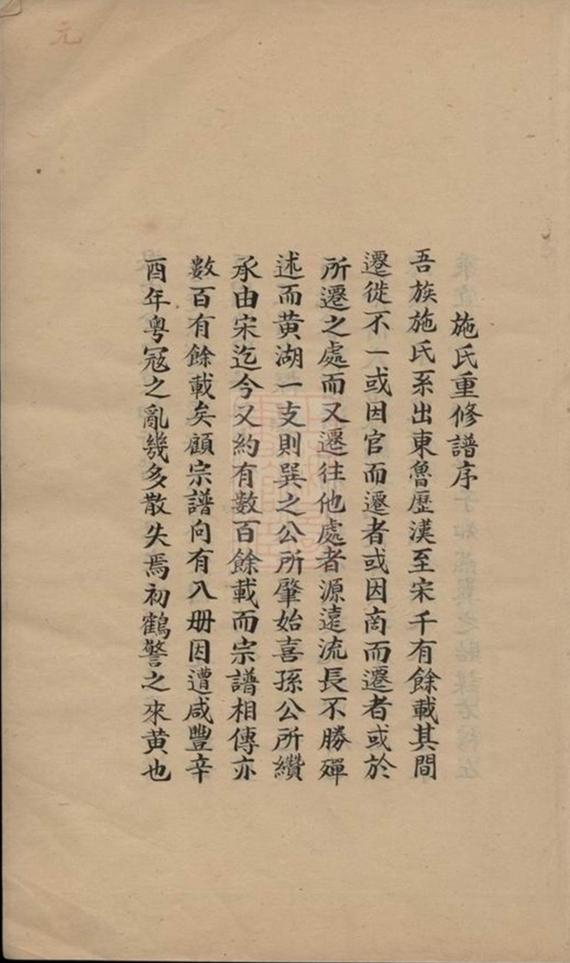 元
施氏重修譜序
吾族施氏系出東魯歷漢至宋千有餘載其間
遷徙不一或因官而遷者或因商而遷者或於
所遷之處而又遷往他處者源遠流長不勝殫
述而黃湖一支則巽之公所肇始喜孫公所纘
承由宋迄今又約有數百餘載而宗譜相傳亦
數百有餘載矣顧宗譜向有八冊因遭咸豐辛
酉年粵寇之亂幾多散失焉初鶴警之來黃也